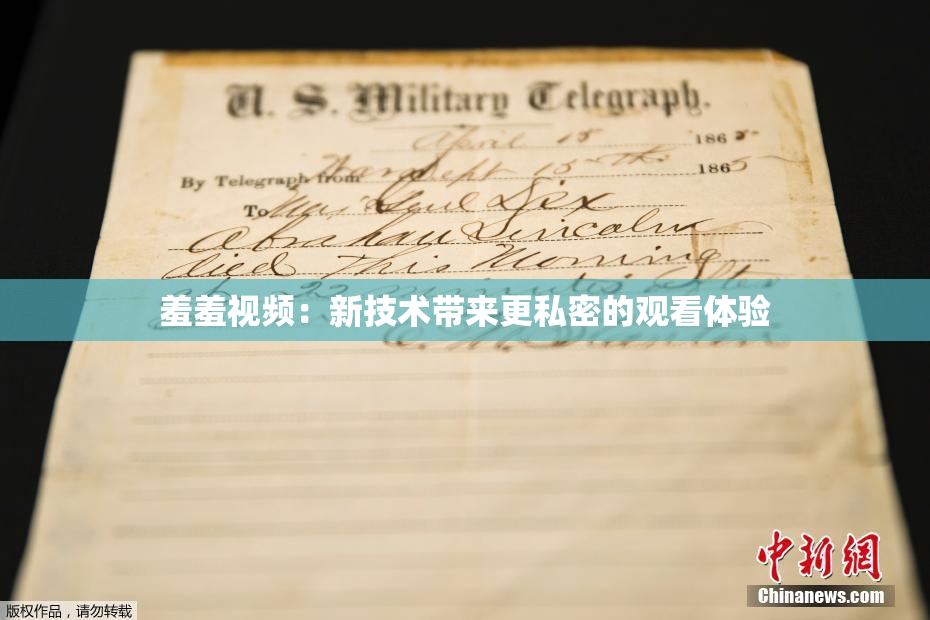 U. S. Military Telegraph.
April 15 1865
By Telegraph from War Dept 15th 1865
To Maj Genl Dix
Abraham Lincoln
died This Morning
at 22 minutes after
羞羞视频：新技术带来更私密的观看体验
E. M. Stanton
中新网
Chinanews.com
版权作品，请勿转载